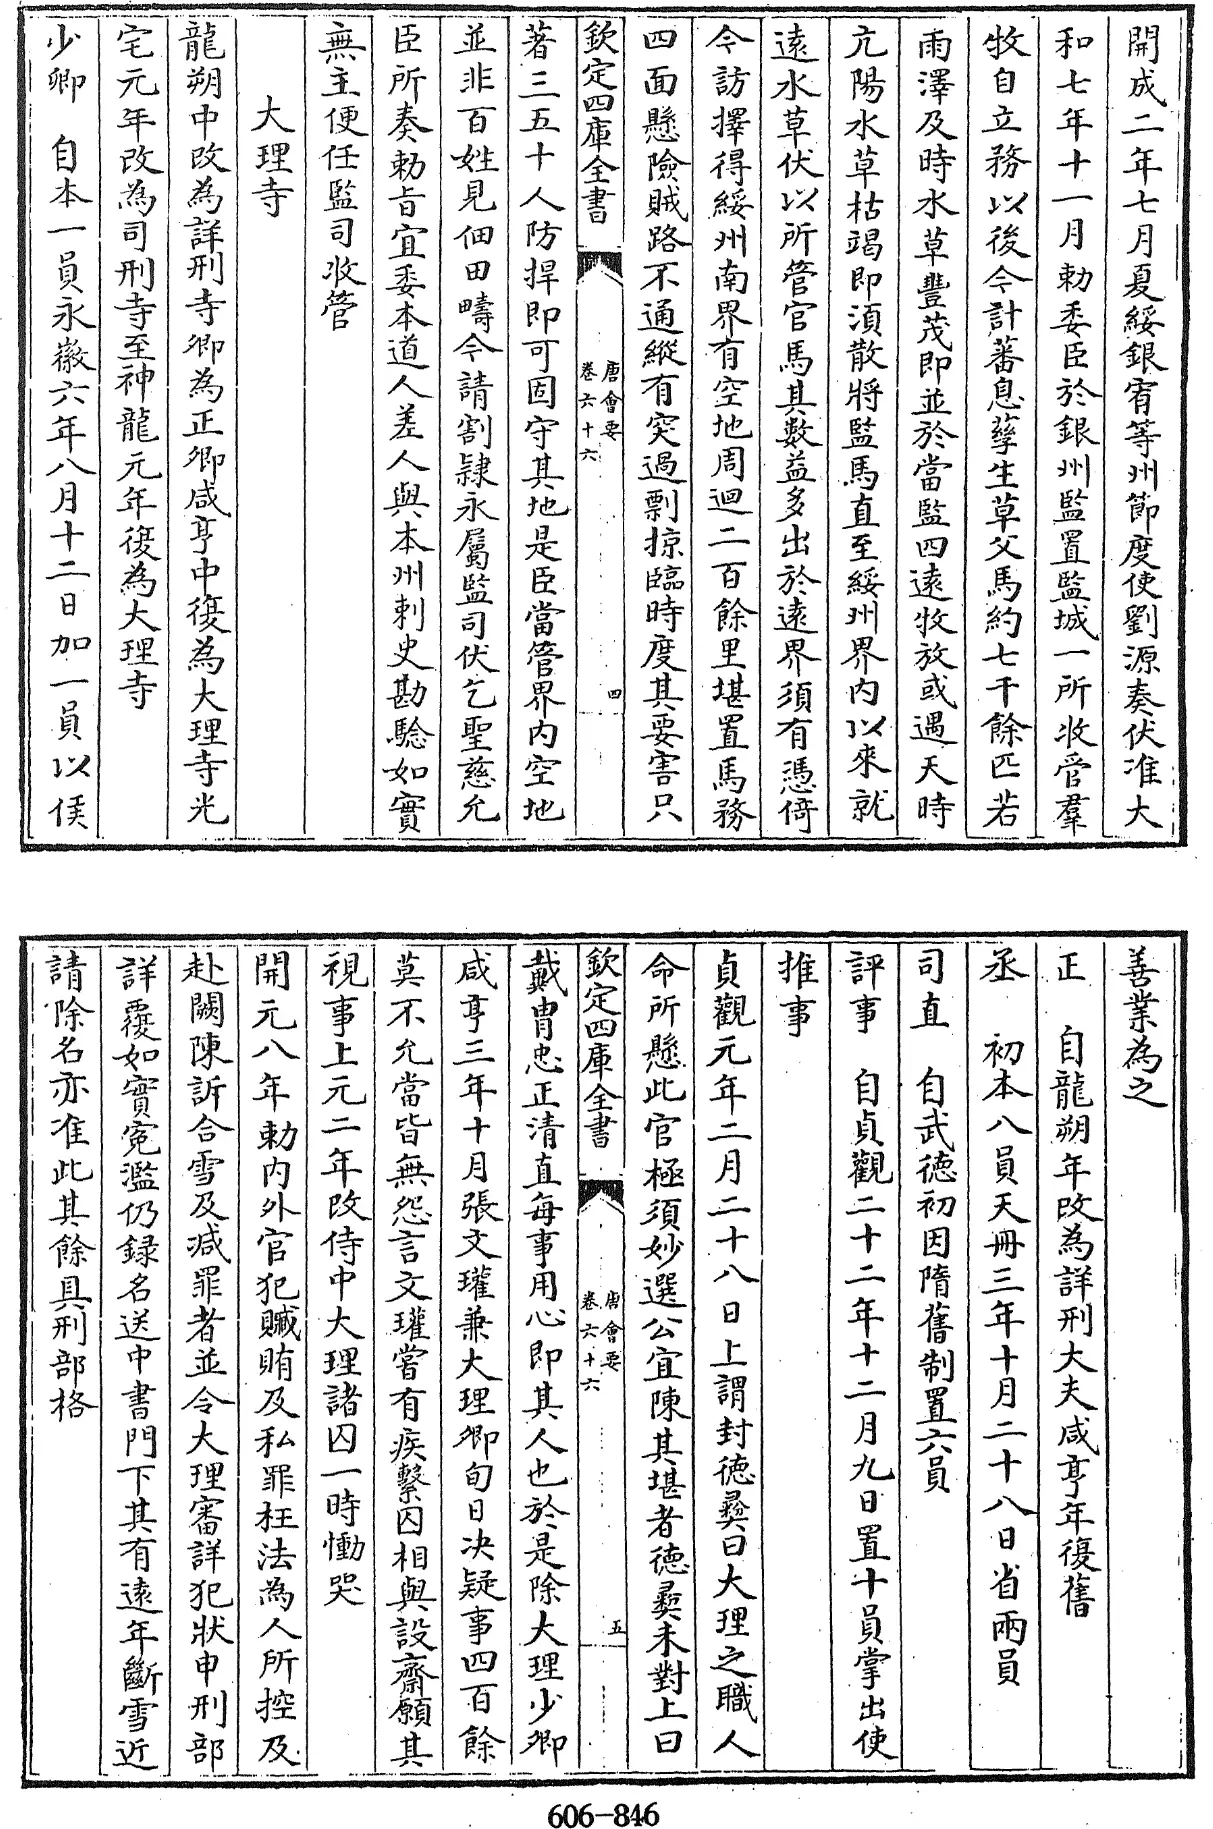 開成二年七月夏綏銀宥等州節度使劉源奏伏准大
和七年十一月勅委臣於銀州監置監城一所收管羣
牧自立務以後今計蕃息孳生草父馬約七千餘匹若
雨澤及時水草豐茂即並於當監四遠牧放或遇天時
亢陽水草枯竭即湏散將監馬直至綏州界内以來就
遠水草伏以所管官馬其數益多出於遠界須有憑倚
今訪擇得綏州南界有空地周迴二百餘里堪置馬務
四面懸險賊路不通縱有突過剽掠臨時度其要害只
欽定四庫全書
唐會要
卷六十六
四
著三五十人防捍即可固守其地是臣當管界内空地
並非百姓見佃田疇今請割隸永屬監司伏乞聖慈允
臣所奏勅旨宜委本道人差人與本州刺史勘驗如實
無主便任監司收管
大理寺
龍朔中改為詳刑寺卿為正卿咸亨中復為大理寺光
宅元年改為司刑寺至神龍元年復為大理寺
少卿 自本一員永徽六年八月十二日加一員以侯
善業為之
正 自龍朔年改為詳刑大夫咸亨年復舊
丞 初本八員天冊三年十月二十八日省兩員
司直 自武徳初因隋舊制置六員
評事 自貞觀二十二年十二月九日置十員掌出使
推事
貞觀元年二月二十八日上謂封徳彞曰大理之職人
命所懸此官極須妙選公宜陳其堪者徳彞未對上曰
欽定四庫全書
唐會要
卷六十六
五
戴胄忠正清直每事用心即其人也於是除大理少卿
咸亨三年十月張文瓘兼大理卿旬日决疑事四百餘
莫不允當皆無怨言文瓘嘗有疾繫囚相與設齋願其
視事上元二年改侍中大理諸囚一時慟哭
開元八年勅内外官犯贓賄及私罪枉法為人所控及
赴闕陳訴合雪及減罪者並令大理審詳犯狀申刑部
詳覆如實寃濫仍録名送中書門下其有遠年斷雪近
請除名亦准此其餘具刑部格
606-846